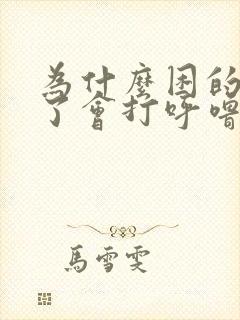 為什麼困的
了會打呼嚕
馬雪雯